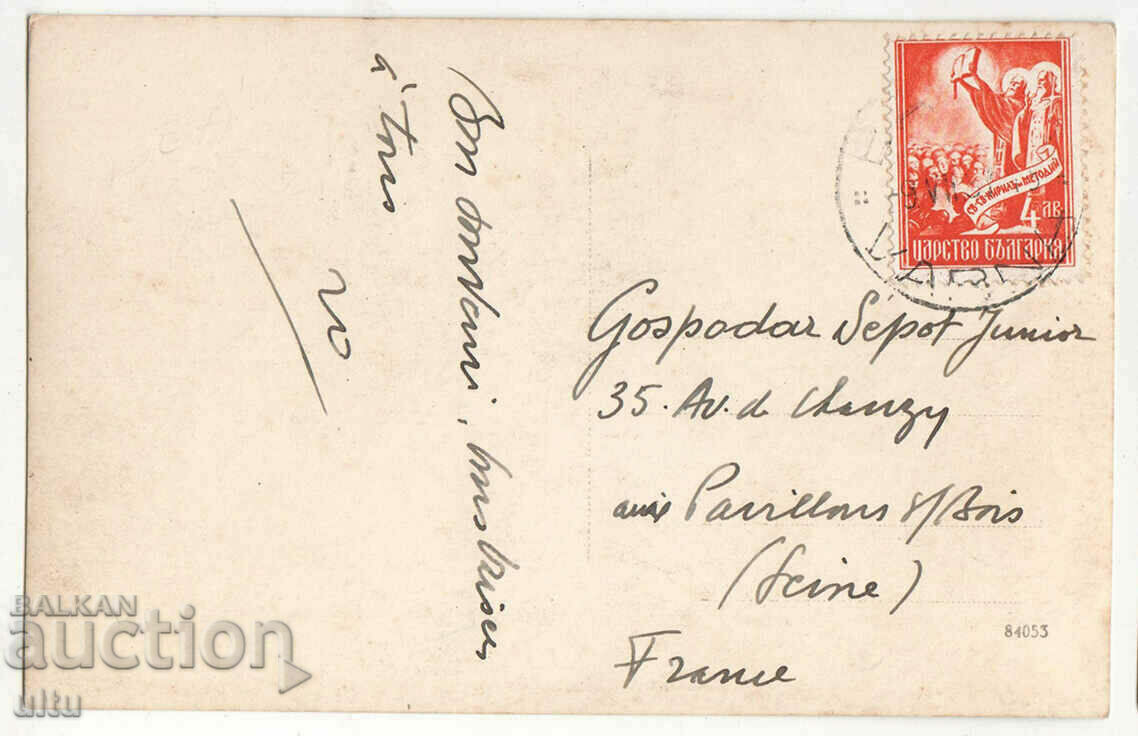 Bon souvenir, bons baisers
à tous
СВ. СВ. КИРИЛЪ и МЕТОДИЙ
4 ЛВ.
ЦАРСТВО БЪЛГАРИЯ
VARNA
Gospodar Sepot Junior
35. Av. de Chanzy
aux Pavillons s/Bois
(Seine)
France
84053
BALKAN
auction
ultu